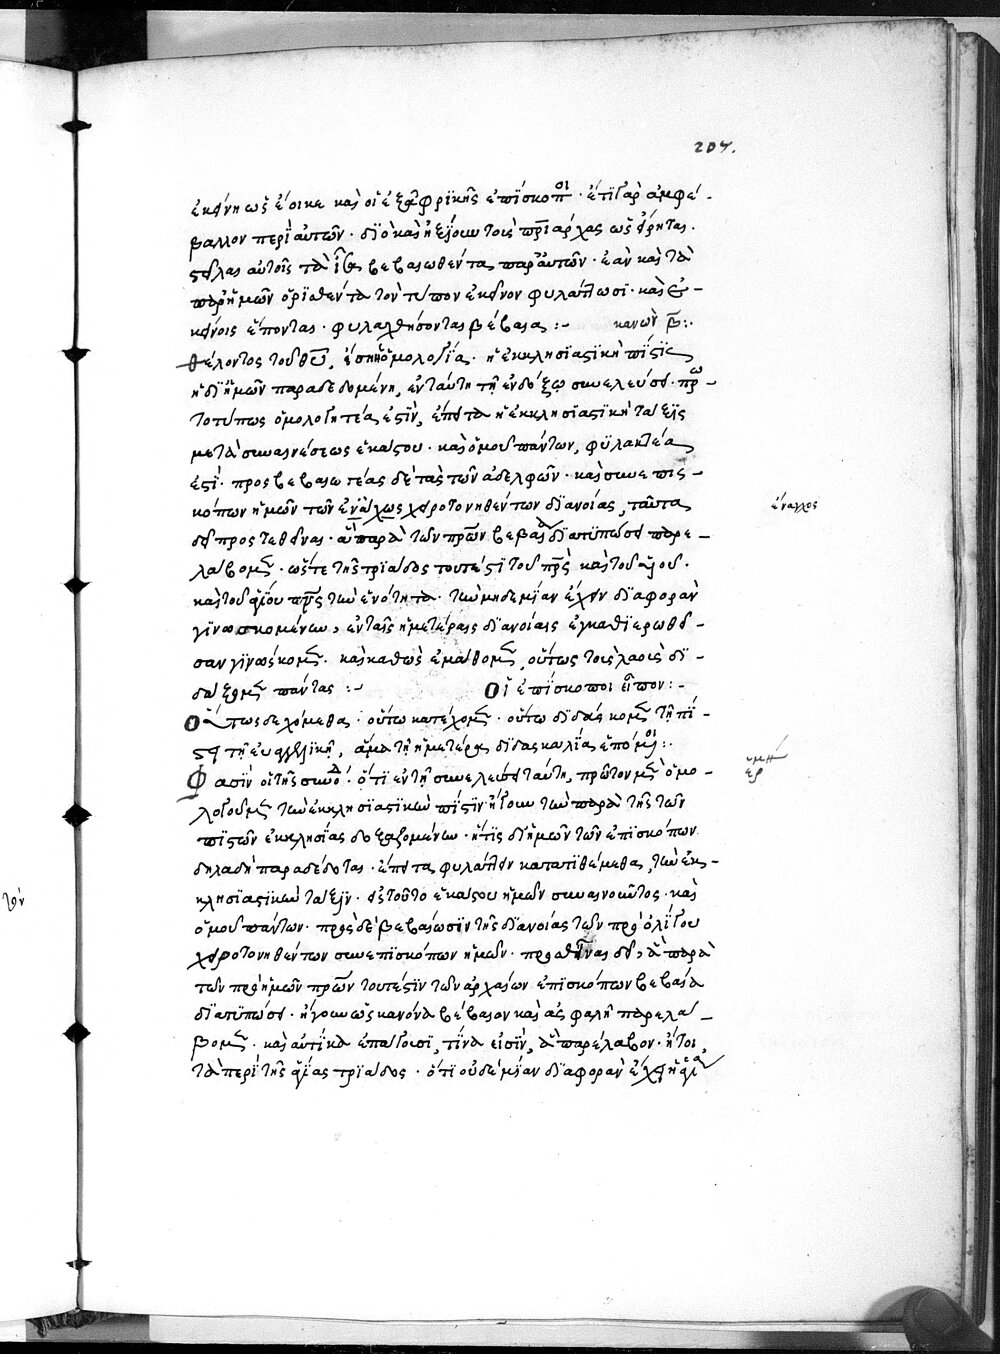 207.
ἐκείνη ὡς ἔοικε καὶ οἱ ἐξ ἀφρικῆς ἐπίσκοποι · ἔτι γὰρ ἀμφέ-
βαλλον περὶ αὐτῶν · διὸ καὶ ἠξίουν τοὺς πριάρχας ὡς εἴρηται.
στεῖλαι αὐτοῖς τὰ ἶσα βεβαιωθέντα παρ' αὐτῶν · ἐὰν καὶ τὰ
παρ' ἡμῶν ὁρισθέντα τὸν τύπον ἐκεῖνον φυλάττωσι · καὶ ἐ-
κείνοις ἕπονται · φυλαχθήσονται βέβαια :- κανὼν β̅:.
θέλοντος τοῦ θυ̅, ἐσῃ ὁμολογίᾳ · ἡ ἐκκλησιαστικὴ πίστις
ἡ δι' ἡμῶν παραδεδομένη, ἐν ταύτῃ τῇ ἐνδόξῳ συνελεύσει · πρω-
τοτύπως ὁμολογητέα ἐστὶν, ἔπειτα ἡ ἐκκλησιαστικὴ τάξις
μετὰ συναινέσεως ἑκάστου · καὶ ὁμοῦ πάντων, φυλακτέα
ἐστί · προσβεβαιωτέας δὲ τὰς τῶν ἀδελφῶν · καὶ συνεπισ-
κόπων ἡμῶν τῶν ἔναγχος χειροτονηθέντων διανοίας, ταῦτα
δεῖ προστεθῆναι · ἃ παρὰ τῶν πρων βεβαίᾳ διατυπώσει παρε-
λάβομεν · ὥστε τῆς τριάδος τουτέστι τοῦ πρς καὶ τοῦ υἱοῦ ·
καὶ τοῦ ἁγίου πνς τὴν ἑνότητα · τὴν μηδεμίαν ἔχειν διαφορὰν
γινωσκομένην, ἐν ταῖς ἡμετέραις διανοίαις ἐγκαθιερωθεῖ-
σαν γινώσκομεν · καὶ καθὼς ἐμάθομεν, οὕτως τοὺς λαοὺς δι-
δάξομεν πάντας :- Οἱ ἐπίσκοποι εἶπον :-
Οὕτως δεχόμεθα · οὕτω κατέχομεν · οὕτω διδάσκομεν τῇ πί-
στει τῇ εὐαγγελικῇ, ἅμα τῇ ἡμετέρᾳ διδασκαλίᾳ ἑπόμενοι :.
Φασὶν οἱ τῆς συνόδου · ὅτι ἐν τῇ συνελεύσει ταύτῃ, πρῶτον μὲν ὁμο-
λογοῦμεν τὴν ἐκκλησιαστικὴν πίστιν ἤγουν τὴν παρὰ τῆς τῶν
πιστῶν ἐκκλησίας δοξαζομένην · ἥτις δι' ἡμῶν τῶν ἐπισκόπων
δηλαδὴ παραδέδοται · ἔπειτα φυλάττειν κατατιθέμεθα, τὴν ἐκ-
κλησιαστικὴν τάξιν · εἰς τοῦτο ἑκάστου ἡμῶν συναινοῦντος · καὶ
ὁμοῦ πάντων · πρὸς δὲ βεβαίωσιν τῆς διανοίας τῶν πρὸ ὀλίγου
χειροτονηθέντων συνεπισκόπων ἡμῶν · προσθεῖναι δεῖ, ἃ παρὰ
τῶν πρὸ ἡμῶν πρων τουτέστιν τῶν ἀρχαίων ἐπισκόπων βεβαίᾳ
διατυπώσει · ἤγουν ὡς κανόνα βέβαιον καὶ ἀσφαλῆ παρελά-
βομεν · καὶ αὐτίκα ἐπάγουσι, τίνα εἰσὶν, ἃ παρέλαβον · ἤτοι,
τὰ περὶ τῆς ἁγίας τριάδος · ὅτι οὐδεμίαν διαφορὰν ἔχει ἡ ἁγία
ἔναγχος